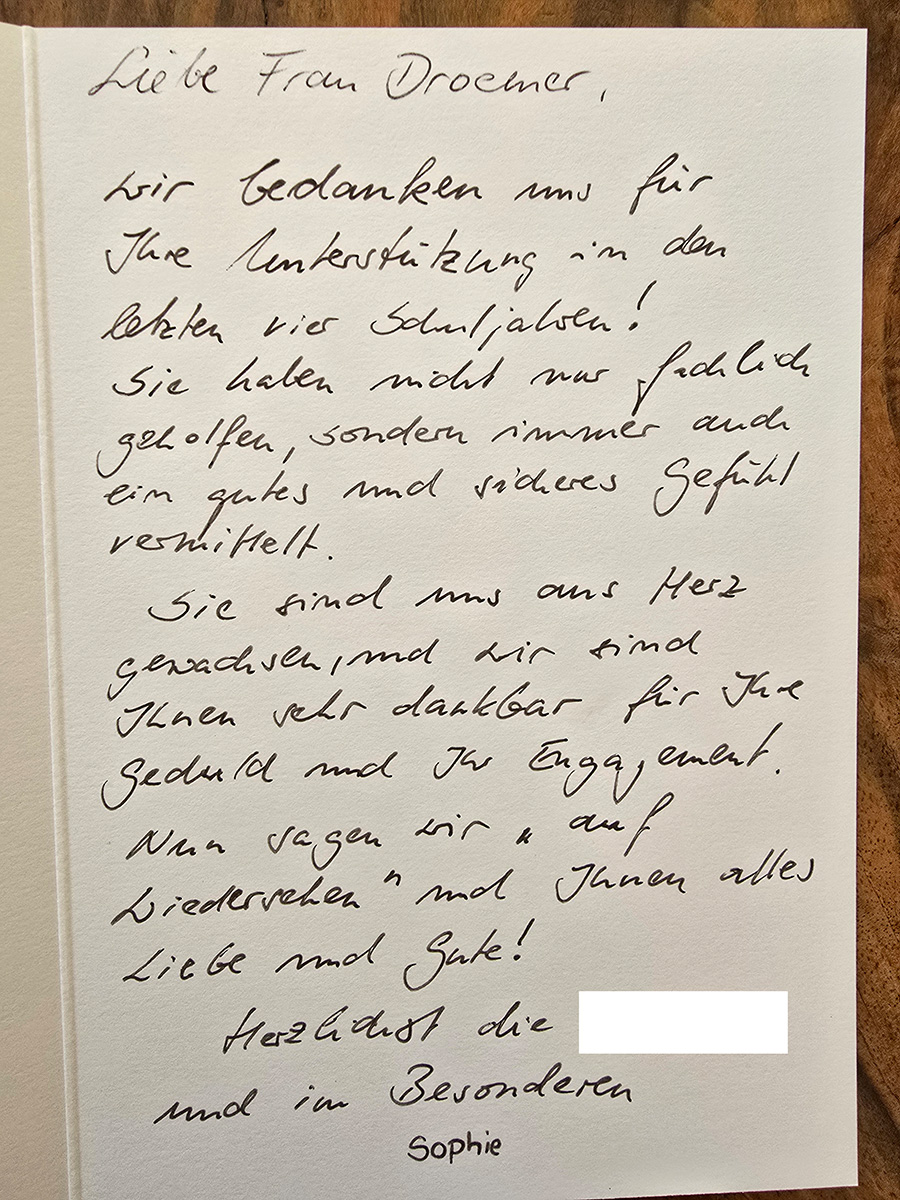 Liebe Frau Droemer,
wir bedanken uns für
Ihre Unterstützung in den
letzten vier Schuljahren!
Sie haben nicht nur fachlich
geholfen, sondern immer auch
ein gutes und sicheres Gefühl
vermittelt.
Sie sind uns ans Herz
gewachsen, und wir sind
Ihnen sehr dankbar für Ihre
Geduld und Ihr Engagement.
Nun sagen wir „auf
Wiedersehen" und Ihnen alles
Liebe und Gute!
Herzlichst die
und im Besonderen
Sophie